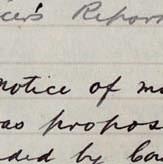 icer's Report
Notice of m
as propos
ded by Co